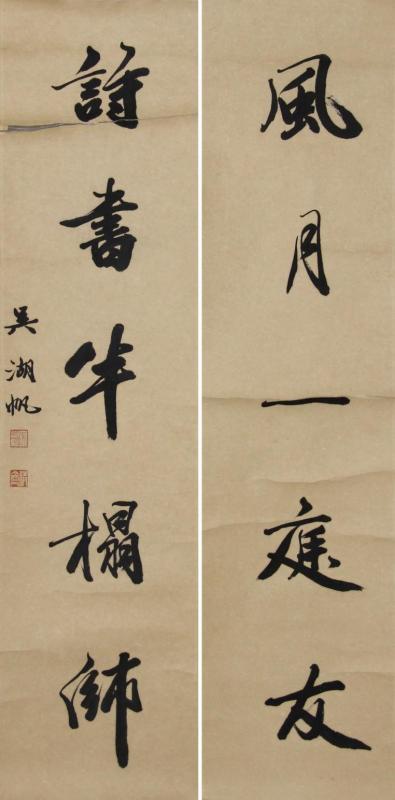 風月一庭友
詩書半榻師
吳湖帆